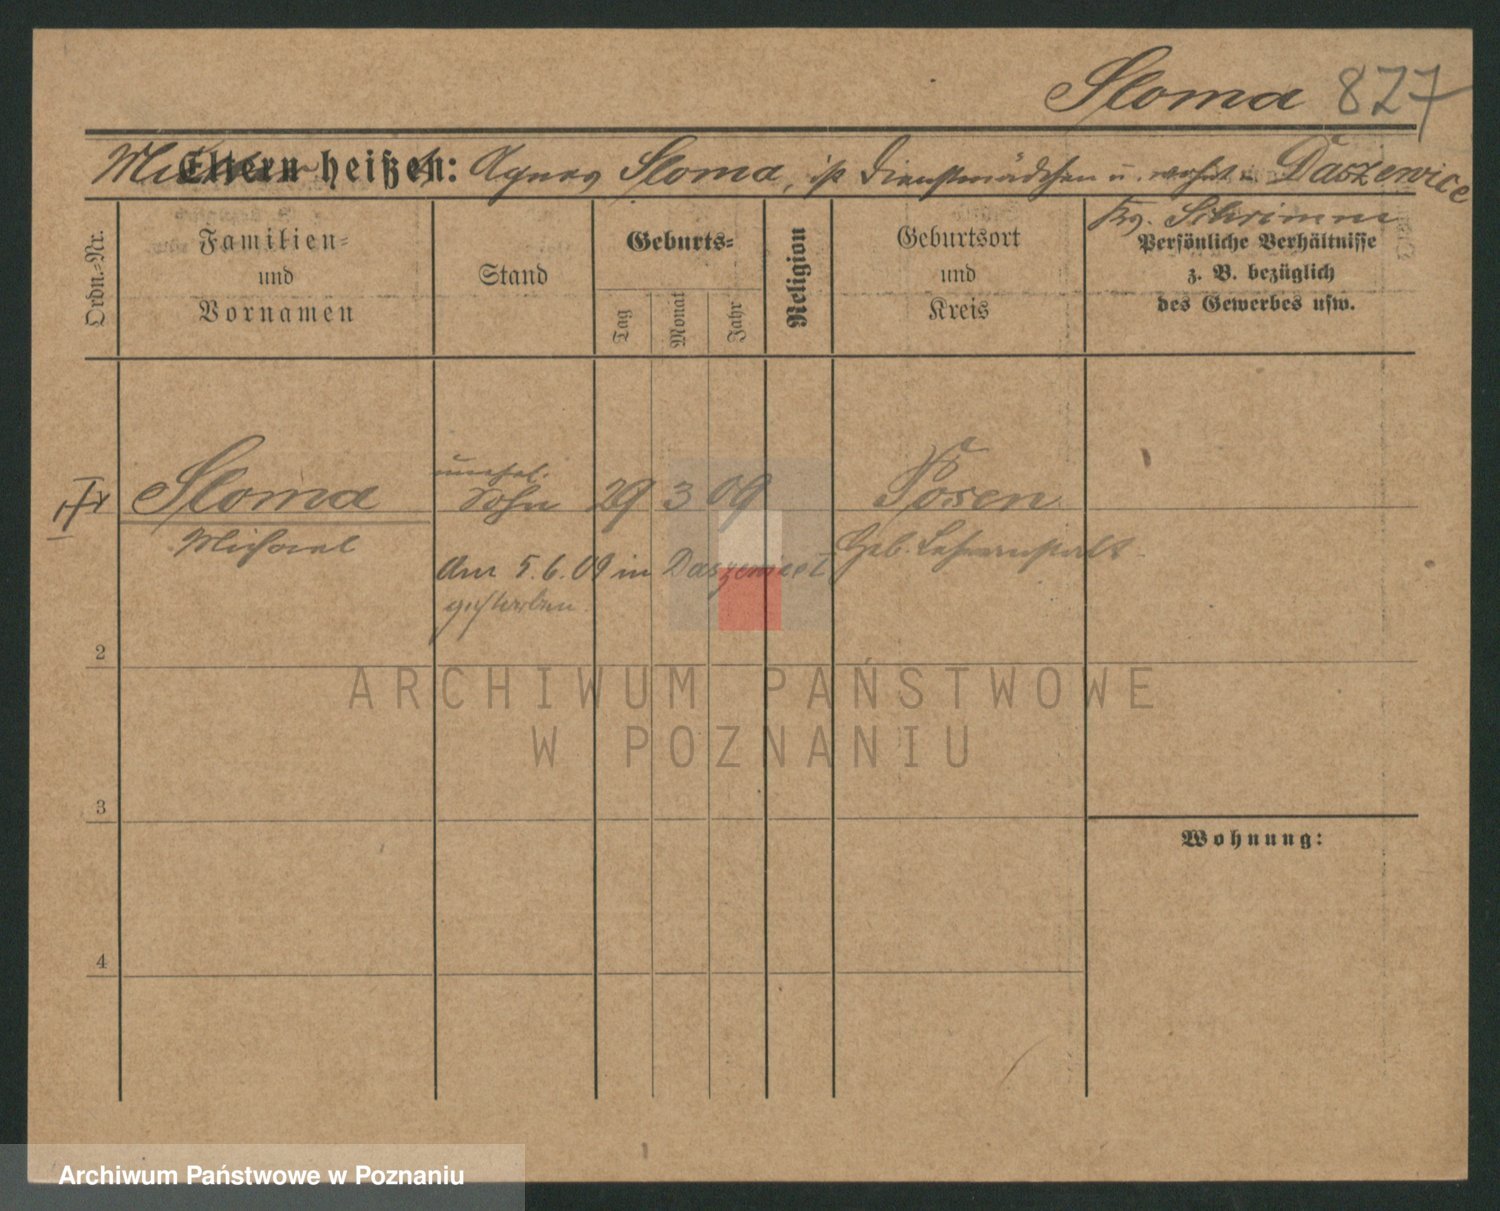 Sloma 827
Mutter Eltern heißen: Agnes Sloma, ist Dienstmädchen u. wohnt in Daszewice
Kr. Schrimm
Ordn.-Nr.
Familien-
und
Vornamen
Stand
Geburts-
Tag
Monat
Jahr
Religion
Geburtsort
und
Kreis
Persönliche Verhältnisse
z. B. bezüglich
des Gewerbes usw.
Sloma
unehel.
Sohn 29 3 09 Posen
Michael
Geb. Lehranstalt
Am 5.6.09 in
gestorben.
2
3
4
Wohnung:
ARCHIWUM PAŃSTWOWE
W POZNANIU
Archiwum Państwowe w Poznaniu